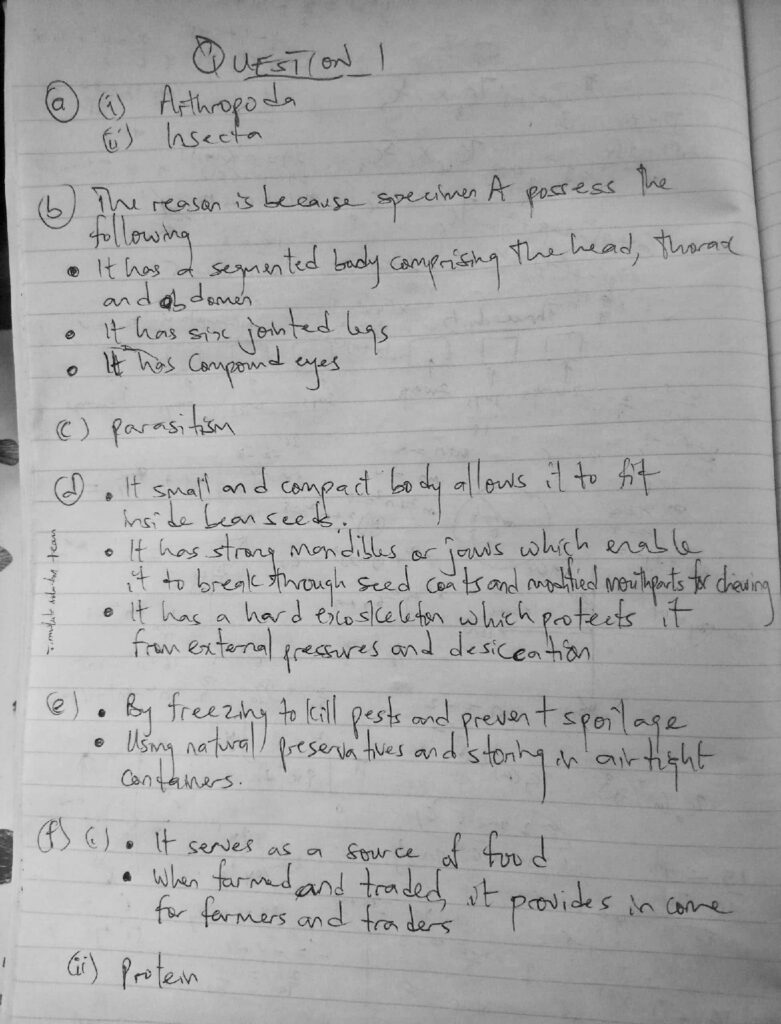 QUESTION 1
(a) (i) Arthropoda
(ii) Insecta
(b) The reason is because specimen A possess the
following
• It has a segmented body comprising the head, thorax
and abdomen
• It has six jointed legs
• It has compound eyes
(c) parasitism
(d) • It small and compact body allows it to fit
inside bean seeds.
• It has strong mandibles or jaws which enable
it to break through seed coats and modified mouthparts for chewing
• It has a hard exoskeleton which protects it
from external pressures and desiccation
(e) • By freezing to kill pests and prevent spoilage
• Using natural preservatives and storing in air tight
containers.
(f) (i) • It serves as a source of food
• When farmed and traded, it provides income
for farmers and traders
(ii) protein
team